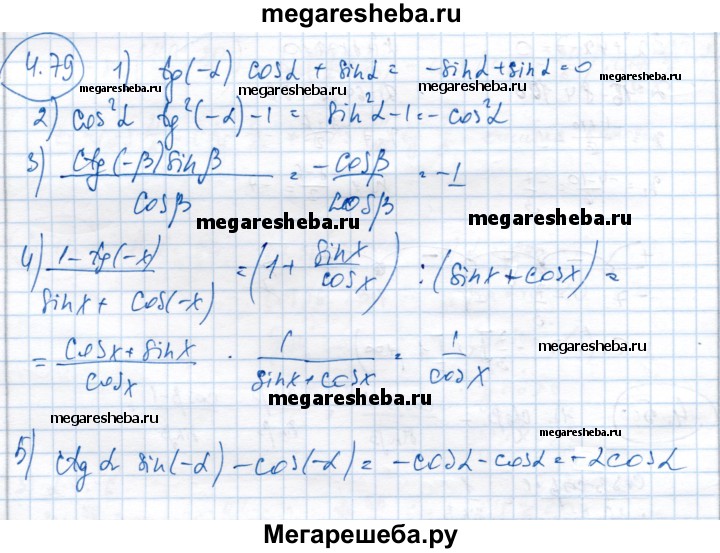 megaresheba.ru
4.79 1) tg(-α) cosα + sinα = -sinα + sinα = 0
megaresheba.ru megaresheba.ru megaresheba.ru
2) cos²α tg²(-α) - 1 = sin²α - 1 = -cos²α
3) ctg(-β) sinβ / cosβ = -cosβ / cosβ = -1
megaresheba.ru megaresheba.ru
4) 1 - tg(-x) / sinx + cos(-x) = (1 + sinx / cosx) : (sinx + cosx) =
= cosx + sinx / cosx · 1 / sinx + cosx = 1 / cosx
megaresheba.ru
megaresheba.ru megaresheba.ru
5) ctg α sin(-α) - cos(-α) = -cosα - cosα = -2cosα
megaresheba.ru megaresheba.ru
Мегарешеба.ру